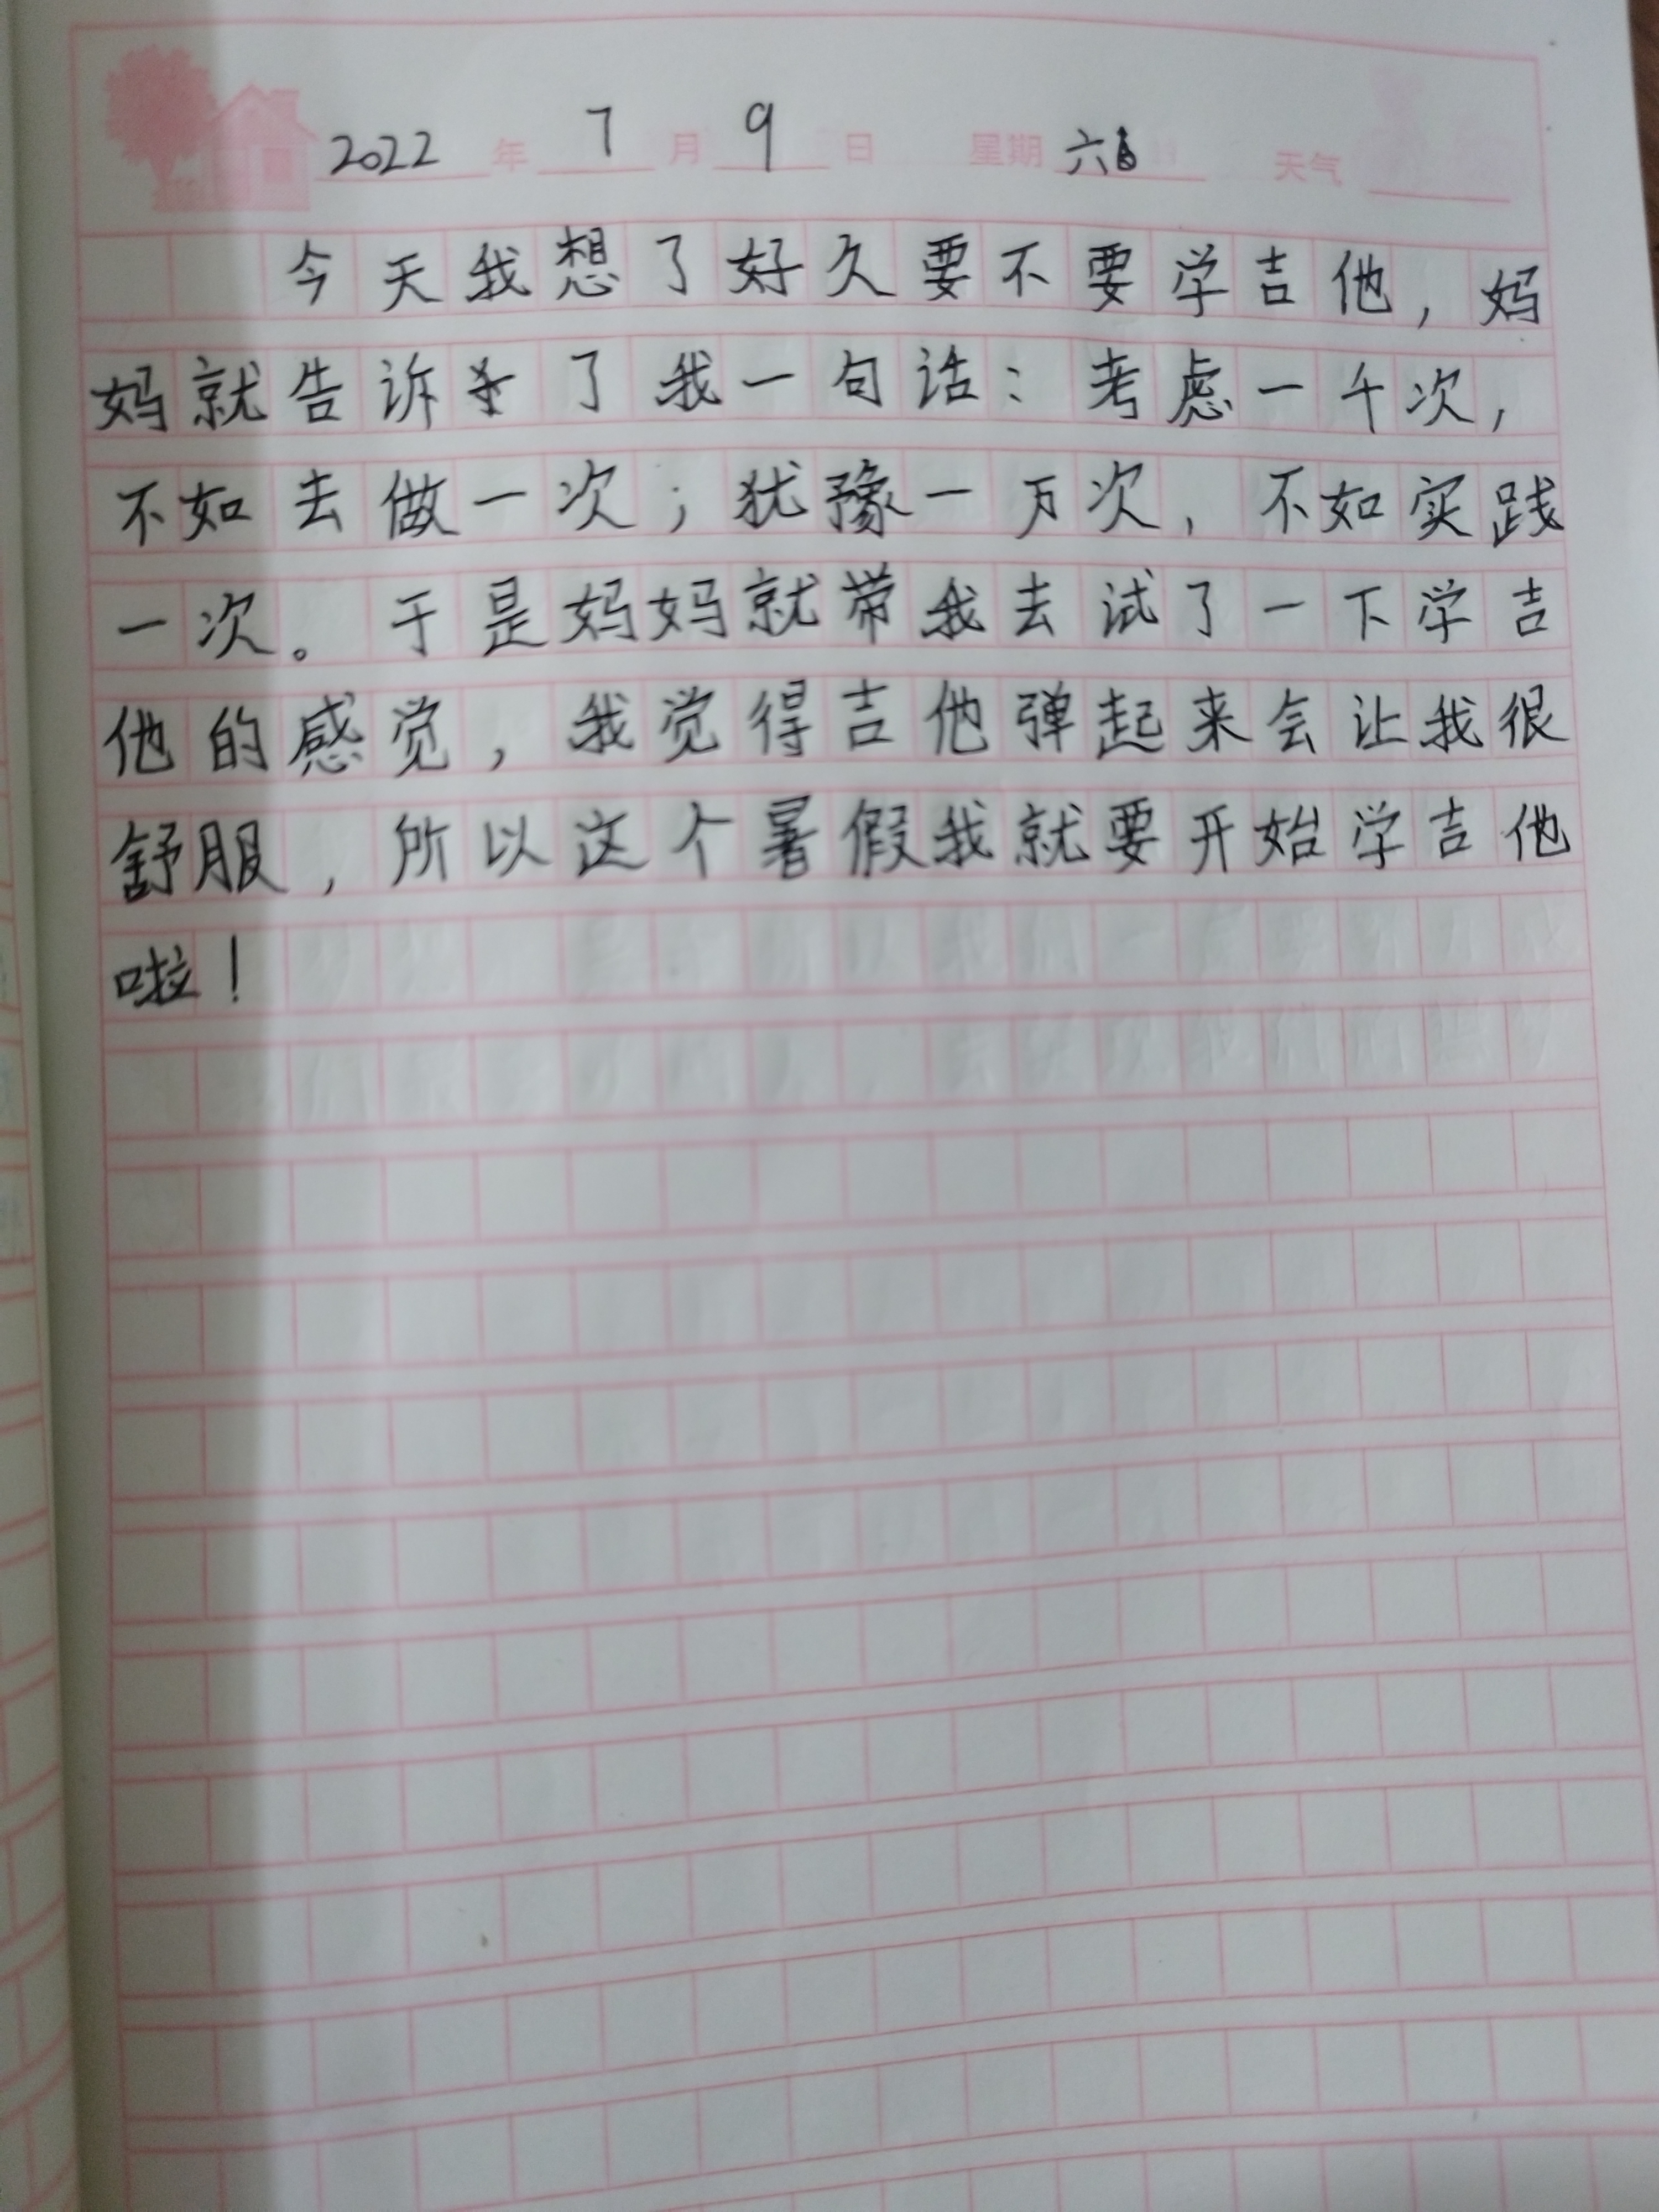 2022年7月9日 星期六 天气
今天我想了好久要不要学吉他，妈
妈就告诉了我一句话：考虑一千次，
不如去做一次；犹豫一万次，不如实践
一次。于是妈妈就带我去试了一下学吉
他的感觉，我觉得吉他弹起来会让我很
舒服，所以这个暑假我就要开始学吉他
啦！